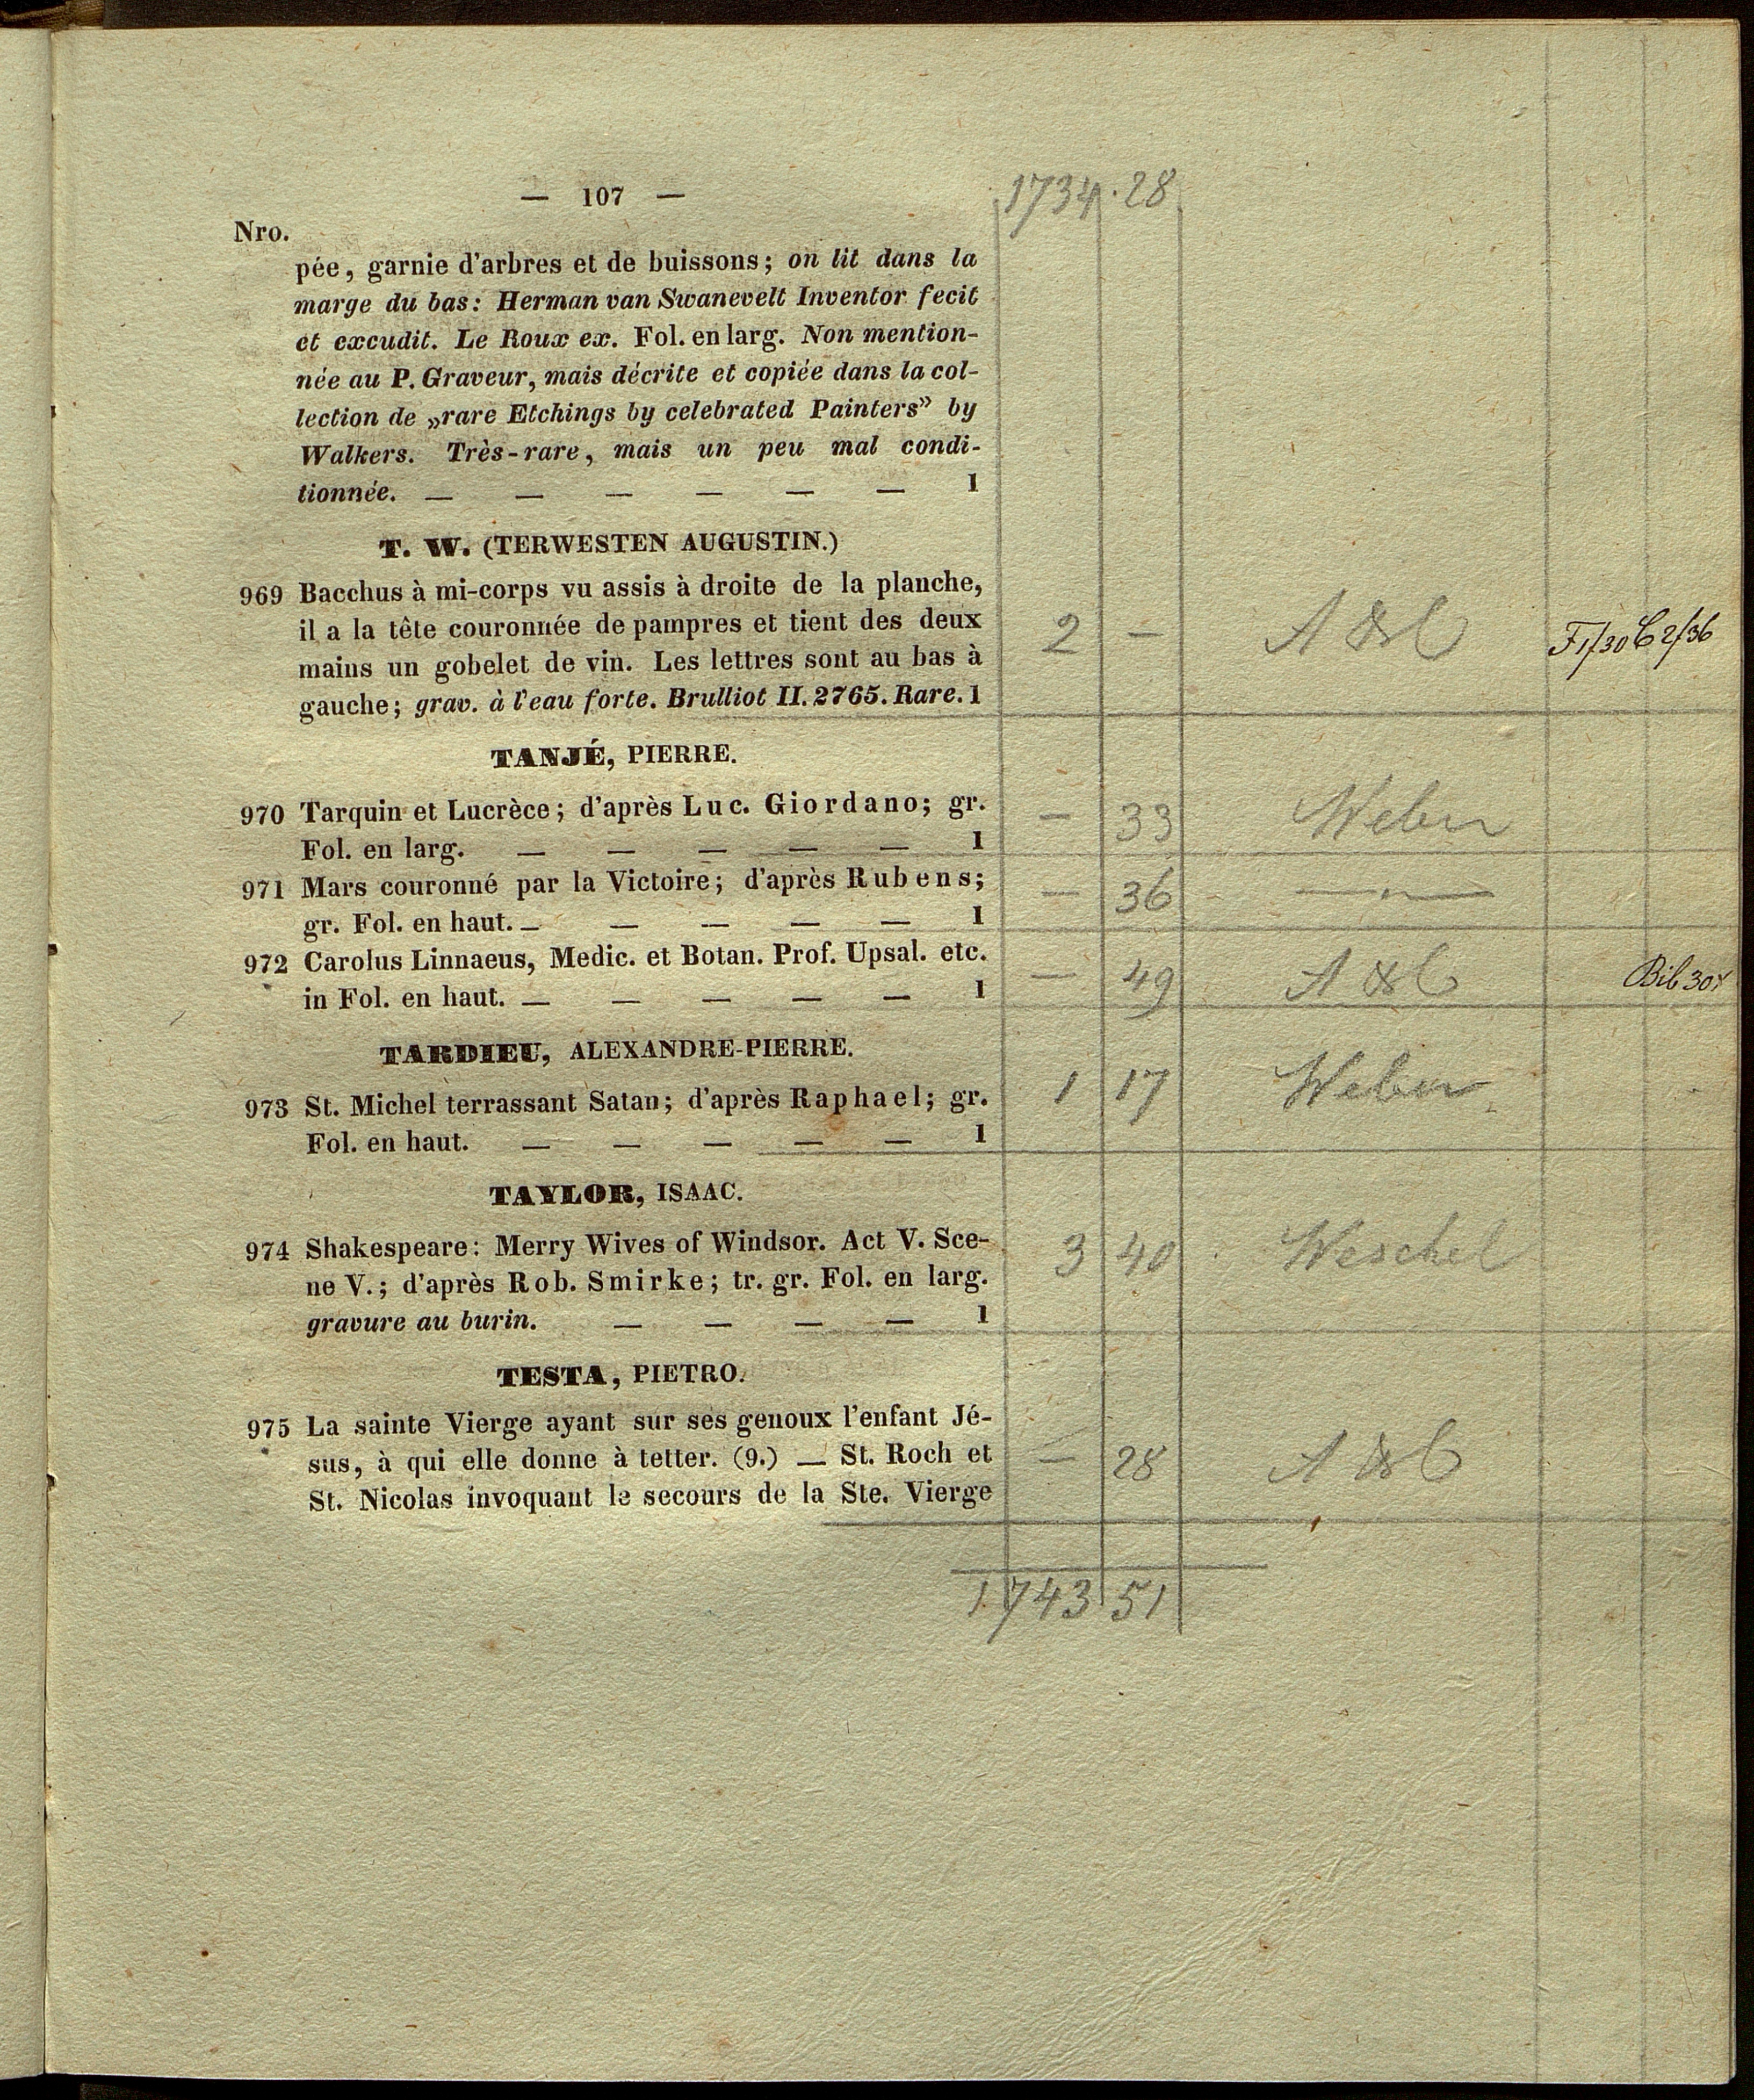 — 107 — 1734 · 28
Nro.
pée, garnie d'arbres et de buissons; on lit dans la
marge du bas: Herman van Swanevelt Inventor fecit
et excudit. Le Roux ex. Fol. en larg. Non mention-
née au P. Graveur, mais décrite et copiée dans la col-
lection de „rare Etchings by celebrated Painters” by
Walkers. Très-rare, mais un peu mal condi-
tionnée. — — — — — — 1
T. W. (TERWESTEN AUGUSTIN.)
969 Bacchus à mi-corps vu assis à droite de la planche,
il a la tête couronnée de pampres et tient des deux 2 —
mains un gobelet de vin. Les lettres sont au bas à
gauche; grav. à l'eau forte. Brulliot II. 2765. Rare. 1
TANJÉ, PIERRE.
970 Tarquin et Lucrèce; d'après Luc. Giordano; gr. — 33 Weber
Fol. en larg. — — — — — 1
971 Mars couronné par la Victoire; d'après Rubens; — 36 — " —
gr. Fol. en haut. — — — — — 1
972 Carolus Linnaeus, Medic. et Botan. Prof. Upsal. etc. — 49
in Fol. en haut. — — — — — 1
TARDIEU, ALEXANDRE-PIERRE.
973 St. Michel terrassant Satan; d'après Raphael; gr. 1 17 Weber
Fol. en haut. — — — — — 1
TAYLOR, ISAAC.
974 Shakespeare: Merry Wives of Windsor. Act V. Sce- 3 40 Weschel
ne V.; d'après Rob. Smirke; tr. gr. Fol. en larg.
gravure au burin. — — — — 1
TESTA, PIETRO.
975 La sainte Vierge ayant sur ses genoux l'enfant Jé-
sus, à qui elle donne à tetter. (9.) — St. Roch et — 28
St. Nicolas invoquant le secours de la Ste. Vierge
1743 51